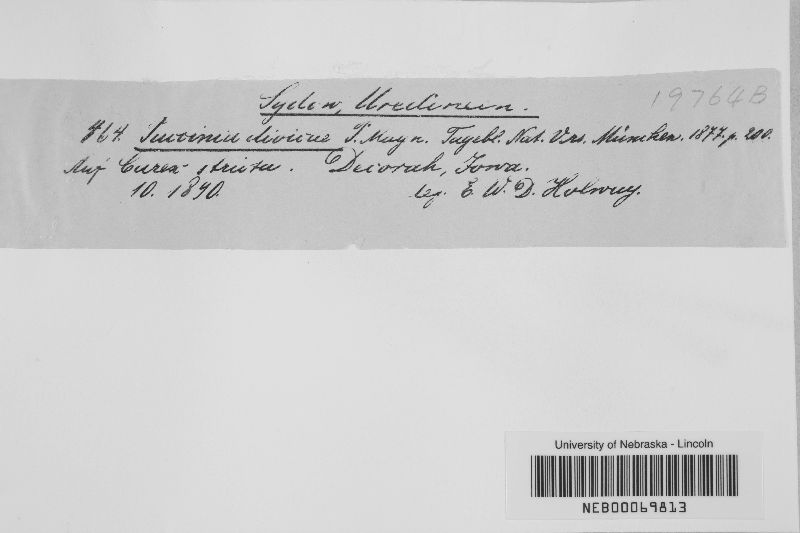 Sydow, Uredineen.
19764B
464. Puccinia dioicae P. Magn. Tagebl. Nat. Vrs. München. 1877. p. 200.
Auf Carex stricta. Decorah, Iowa.
10. 1890. leg. E. W. D. Holway.
University of Nebraska - Lincoln
NEB00069813